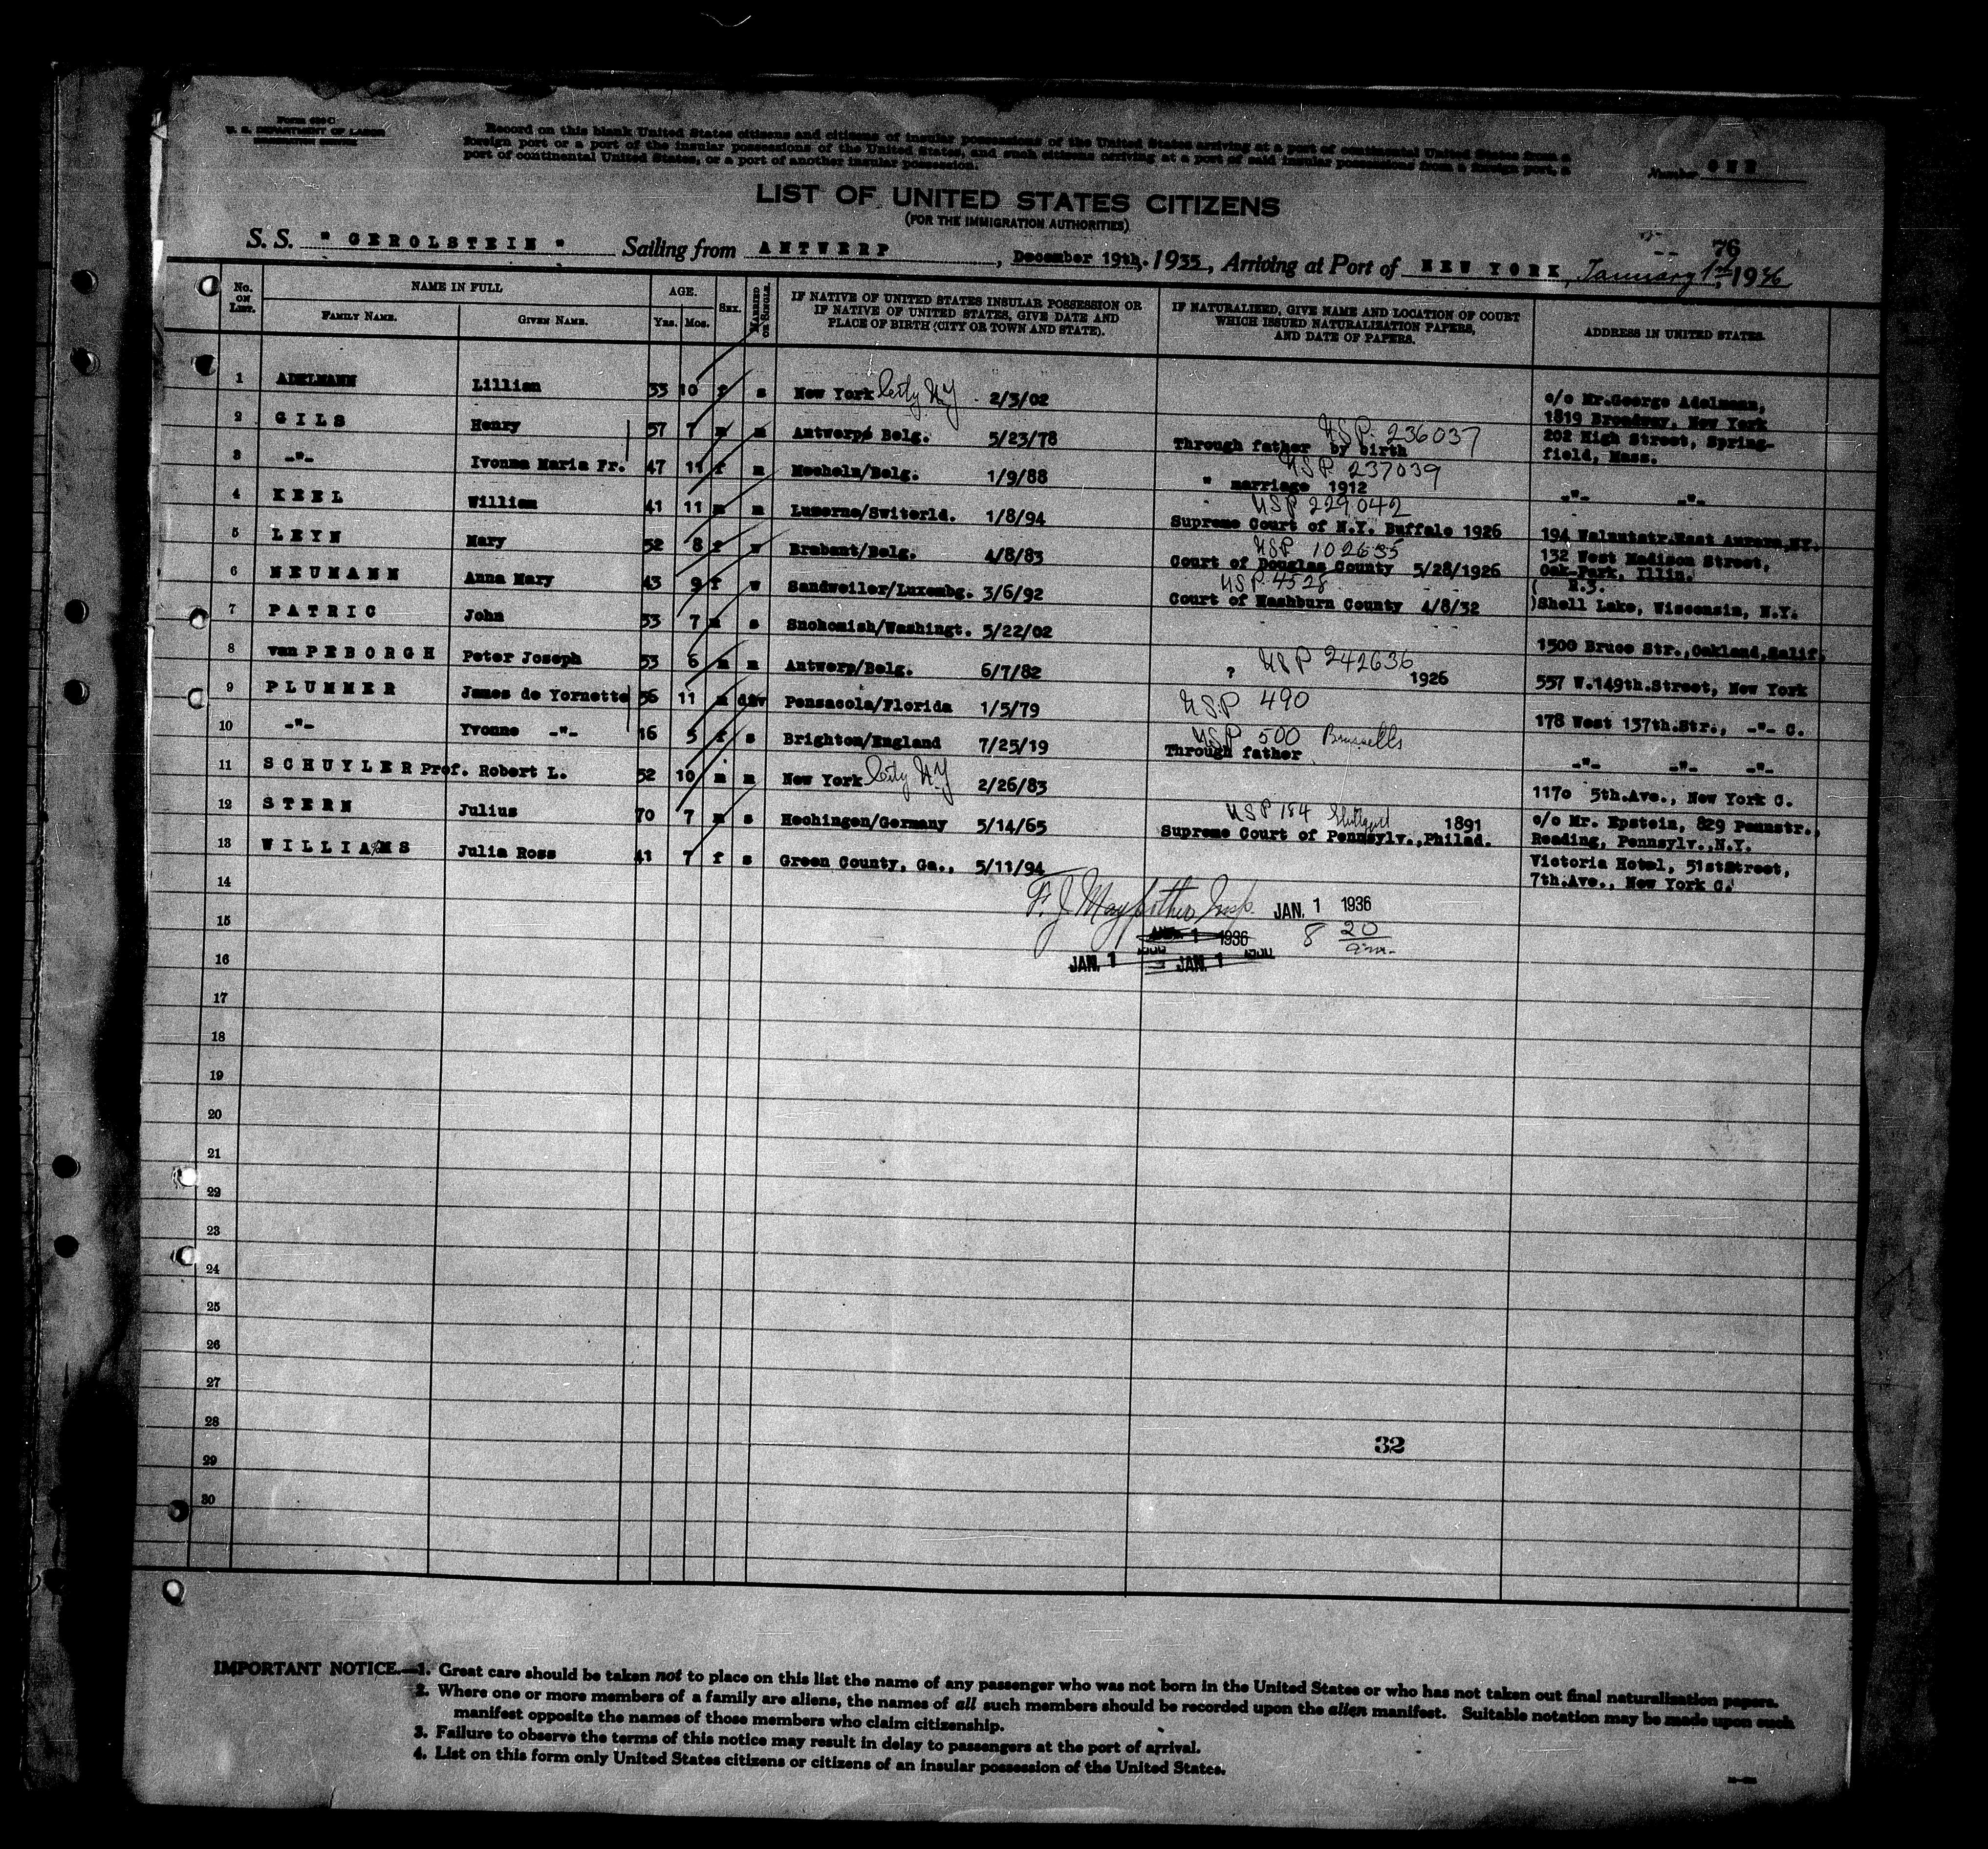 Form 630 C
U. S. DEPARTMENT OF LABOR
IMMIGRATION SERVICE
Record on this blank United States citizens and citizens of insular possessions of the United States arriving at a port of continental United States from a
foreign port or a port of the insular possessions of the United States, and such citizens arriving at a port of said insular possessions from a foreign port, a
port of continental United States, or a port of another insular possession.
Number ONE
LIST OF UNITED STATES CITIZENS
(FOR THE IMMIGRATION AUTHORITIES)
76
S. S. " GEROLSTEIN " Sailing from ANTWERP, December 19th. 1935, Arriving at Port of NEW YORK, January 1st 1936
No. ON LIST. NAME IN FULL FAMILY NAME. GIVEN NAME. AGE. Yrs. Mos. SEX. MARRIED OR SINGLE. IF NATIVE OF UNITED STATES INSULAR POSSESSION OR IF NATIVE OF UNITED STATES, GIVE DATE AND PLACE OF BIRTH (CITY OR TOWN AND STATE). IF NATURALIZED, GIVE NAME AND LOCATION OF COURT WHICH ISSUED NATURALIZATION PAPERS, AND DATE OF PAPERS. ADDRESS IN UNITED STATES.
1 ADELMANN Lillian 33 10 f s New York City NY 2/3/02 c/o Mr.George Adelmann, 1819 Broadway, New York
2 GILS Henry 57 7 m m Antwerp Belg. 5/23/78 USP. 236037 Through father by birth 202 High Street, Springfield, Mass.
3 -"- Ivonna Maria Fr. 47 11 f m Mecheln/Belg. 1/9/88 USP 237039 " marriage 1912 -"- -"-
4 KEEL William 41 11 m m Luzerne/Switerld. 1/8/94 USP 229042 Supreme Court of N.Y. Buffalo 1926 194 Walnutstr.East Aurora,NY.
5 LEYN Mary 52 8 f w Brabant/Belg. 4/8/83 USP 102635 Court of Douglas County 5/28/1926 132 West Madison Street, Oak-Park, Illin.
6 NEUMANN Anna Mary 43 9 f w Sandweiler/Luxembg. 3/6/92 USP 4528 Court of Washburn County 4/8/32 ( R.3. )Shell Lake, Wisconsin, N.Y.
7 PATRIC John 33 7 m s Snohomish/Washingt. 5/22/02 1500 Bruce Str.,Oakland,Calif.
8 van PEBORGH Peter Joseph 53 6 m m Antwerp/Belg. 6/7/82 ? USP 242636 1926 557 W.149th.Street, New York
9 PLUMMER James de Yornette 56 11 m div Pensacola/Florida 1/5/79 USP 490 178 West 137th.Str., -"- C.
10 -"- Yvonne -"- 16 5 f s Brighton/England 7/25/19 USP 500 Brussells Through father -"- -"- -"-
11 SCHUYLER Prof. Robert L. 52 10 m m New York City NY 2/26/83 1170 5th.Ave., New York C.
12 STERN Julius 70 7 m s Hechingen/Germany 5/14/65 USP 184 Stuttgart 1891 Supreme Court of Pennsylv.,Philad. c/o Mr. Epstein, 829 Pennstr., Reading, Pennsylv.,N.Y.
13 WILLIAMS Julia Ross 41 7 f s Green County, Ga., 5/11/94 Victoria Hotel, 51stStreet, 7th.Ave., New York C.
14
F. J. Mayforther Insp. JAN. 1 1936
15
JAN. 1 1936 8 20 a.m.
16
JAN. 1 JAN. 1
17
18
19
20
21
22
23
24
25
26
27
28
32
29
30
IMPORTANT NOTICE.—1. Great care should be taken not to place on this list the name of any passenger who was not born in the United States or who has not taken out final naturalization papers.
2. Where one or more members of a family are aliens, the names of all such members should be recorded upon the alien manifest. Suitable notation may be made upon such
manifest opposite the names of those members who claim citizenship.
3. Failure to observe the terms of this notice may result in delay to passengers at the port of arrival.
4. List on this form only United States citizens or citizens of an insular possession of the United States.